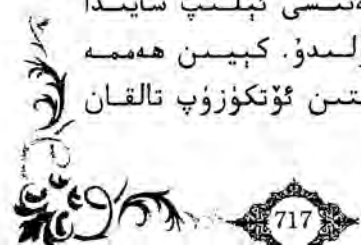 ئېلىپ سايىدا
ولىدۇ. كېيىن ھەممە
ئۆتكۈزۈپ تالقان
717